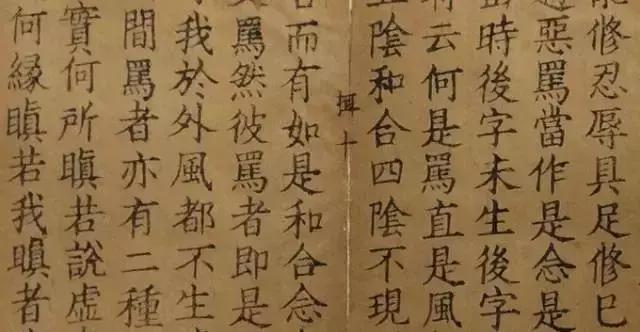 能修忍辱具足修已
惡罵當作是念是
時後字未生後字
有云何是罵直是風
陰和合四陰不現
十
而有如是和合念
罵然彼罵者即是
我於外風都不生
間罵者亦有二種
實何所瞋若說虛
何緣瞋若我瞋者